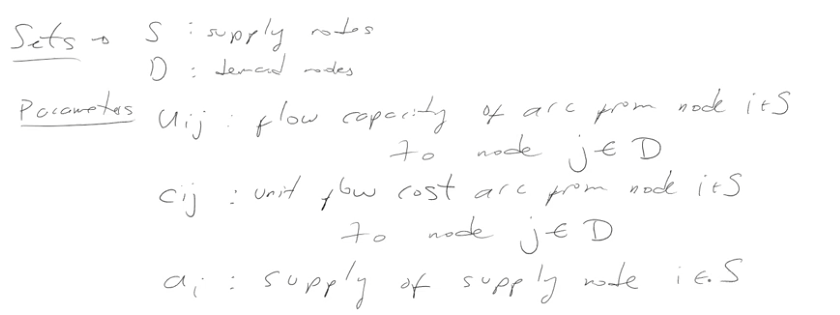 Sets → S : supply nodes
D : demand nodes
Parameters uij : flow capacity of arc from node i∈S
to node j∈D
cij : unit flow cost arc from node i∈S
to node j∈D
ai : supply of supply node i∈S